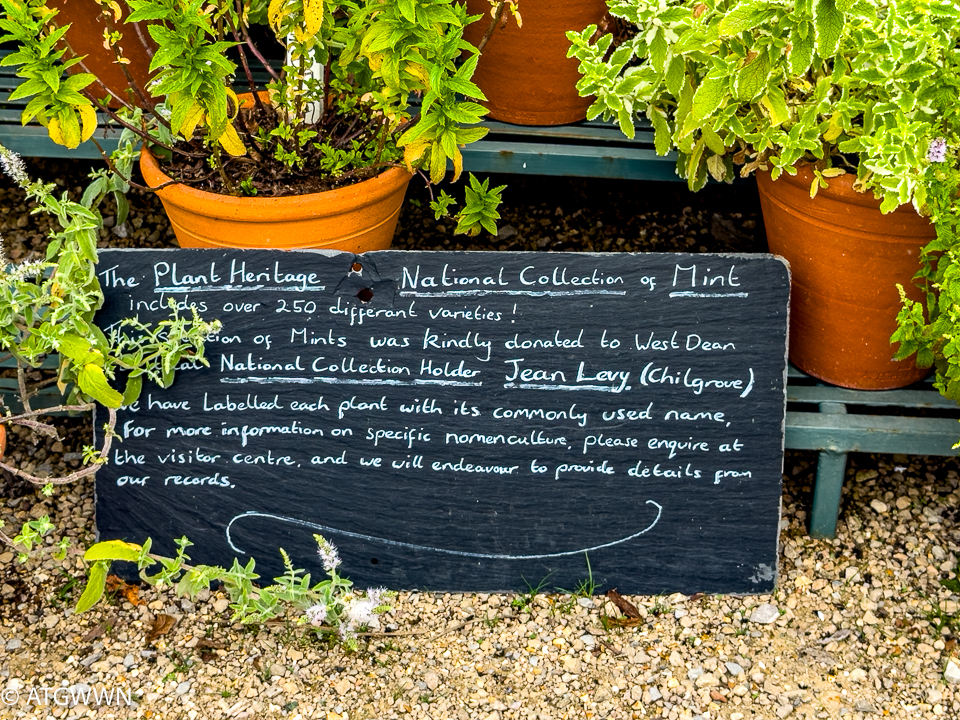 The Plant Heritage National Collection of Mint
includes over 250 different varieties!
of Mints was kindly donated to West Dean
National Collection Holder Jean Levy (Chilgrove)
We have labelled each plant with its commonly used name,
For more information on specific nomenculture, please enquire at
the visitor centre, and we will endeavour to provide details from
our records.
© ATGWWN